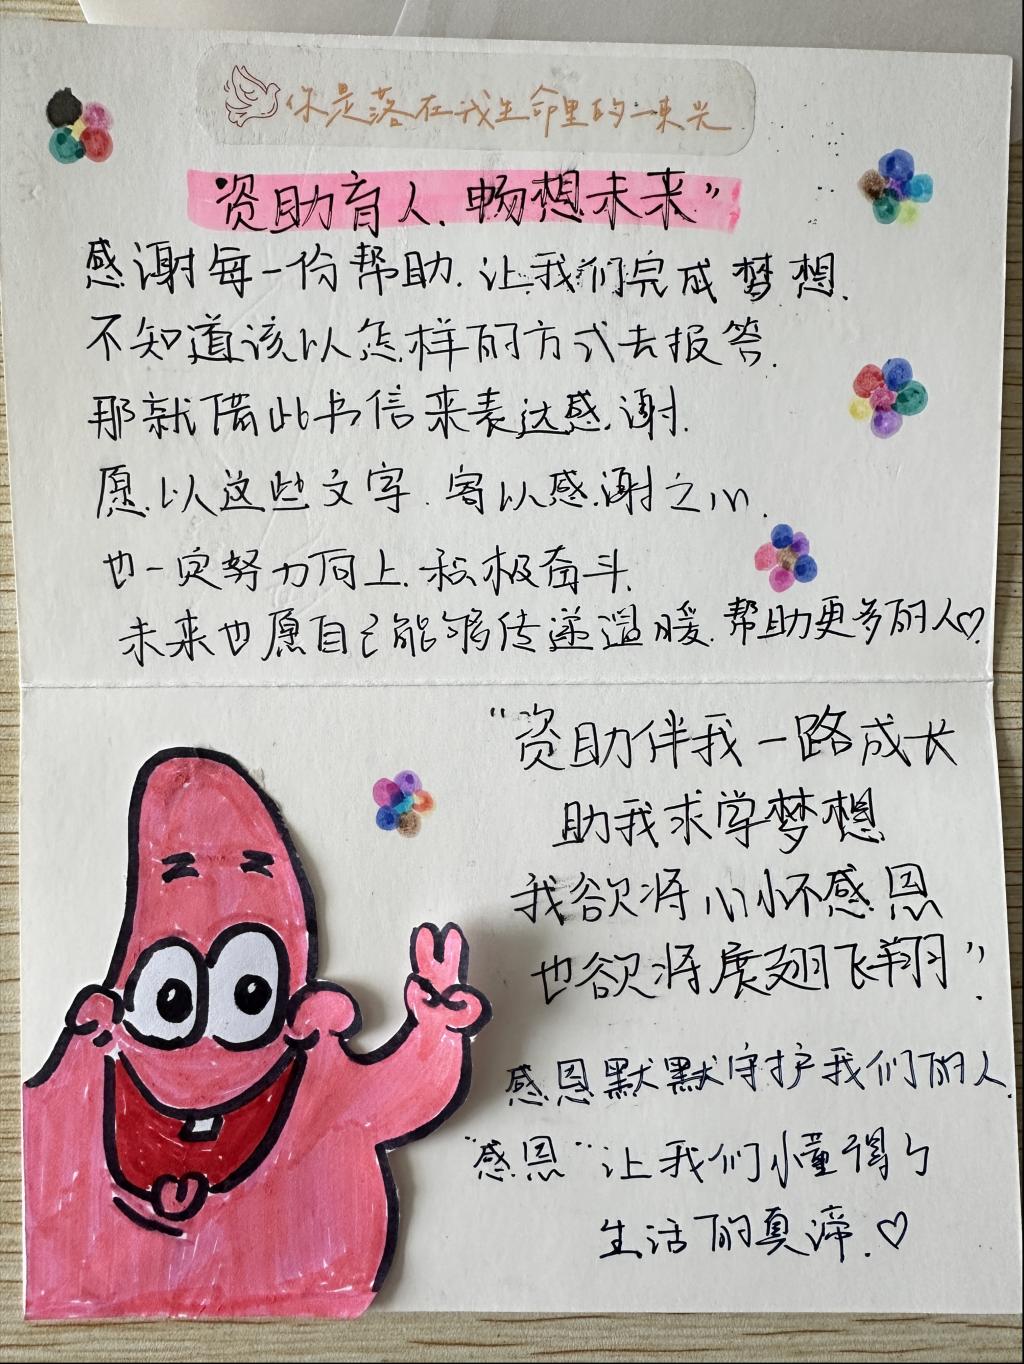 你是落在我生命里的一束光
“资助育人.畅想未来”
感谢每一份帮助.让我们完成梦想.
不知道该以怎样的方式去报答.
那就借此书信来表达感谢.
愿以这些文字.寄以感谢之心.
也一定努力向上.积极奋斗.
未来也愿自己能够传递温暖.帮助更多的人♡.
“资助伴我一路成长
助我求学梦想
我欲将心怀感恩
也欲将展翅飞翔”.
感恩默默守护我们的人.
“感恩”让我们懂得了
生活的真谛.♡